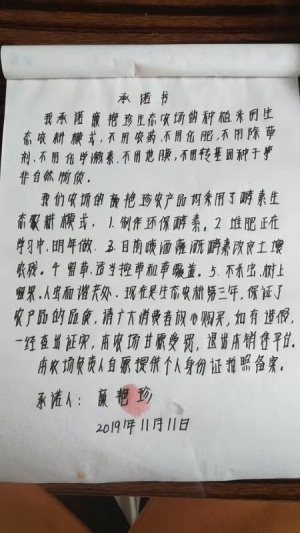 承诺书
我承诺颜艳珍生态农场的种植采用生
态农耕模式，不用农药、不用化肥、不用除草
剂、不用化学激素、不用地膜、不用转基因种子等
非自然物质。
我们农场的颜艳珍农产品均采用了酵素生
态农耕模式，1.制作环保酵素。2.堆肥正在
学习中，明年做。3.日前喷洒灌溉酵素改良土壤
4.留草，适当控草和草覆盖。5.不杀虫，树上
留果。人虫和谐共处。现在是生态农耕第三年，保证了
农产品的品质，请广大消费者放心购买，如有造假，
一经查出证实，本农场甘愿受罚，退出本销售平台。
本农场负责人自愿提供个人身份证拍照备案。
承诺人：颜艳珍
2019年11月11日